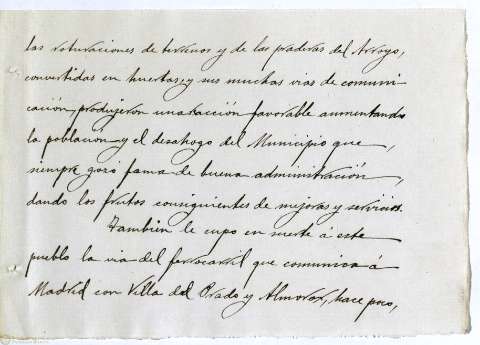 las roturaciones de terrenos y de las praderas del Arroyo,
convertidas en huertas, y sus muchas vias de comuni-
cación, produjeron una reacción favorable aumentando
la población y el desahogo del Municipio que,
siempre gozó fama de buena administración,
dando los frutos consiguientes de mejoras y servicios.
Tambien le cupo en suerte á este
pueblo la via del ferrocarril que comunica á
Madrid con Villa del Prado y Almorox, hace poco,